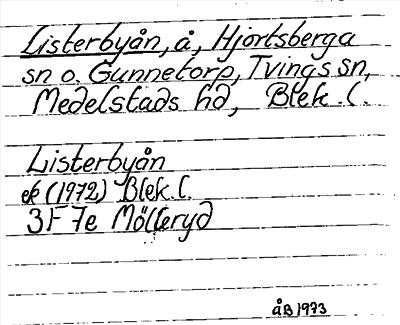 Listerbyån, å, Hjortsberga
sn o. Gunnetorp, Tvings sn,
Medelstads hd, Blek. l.
Listerbyån
ek (1972) Blek l.
3F 7e Mölleryd
åB 1973